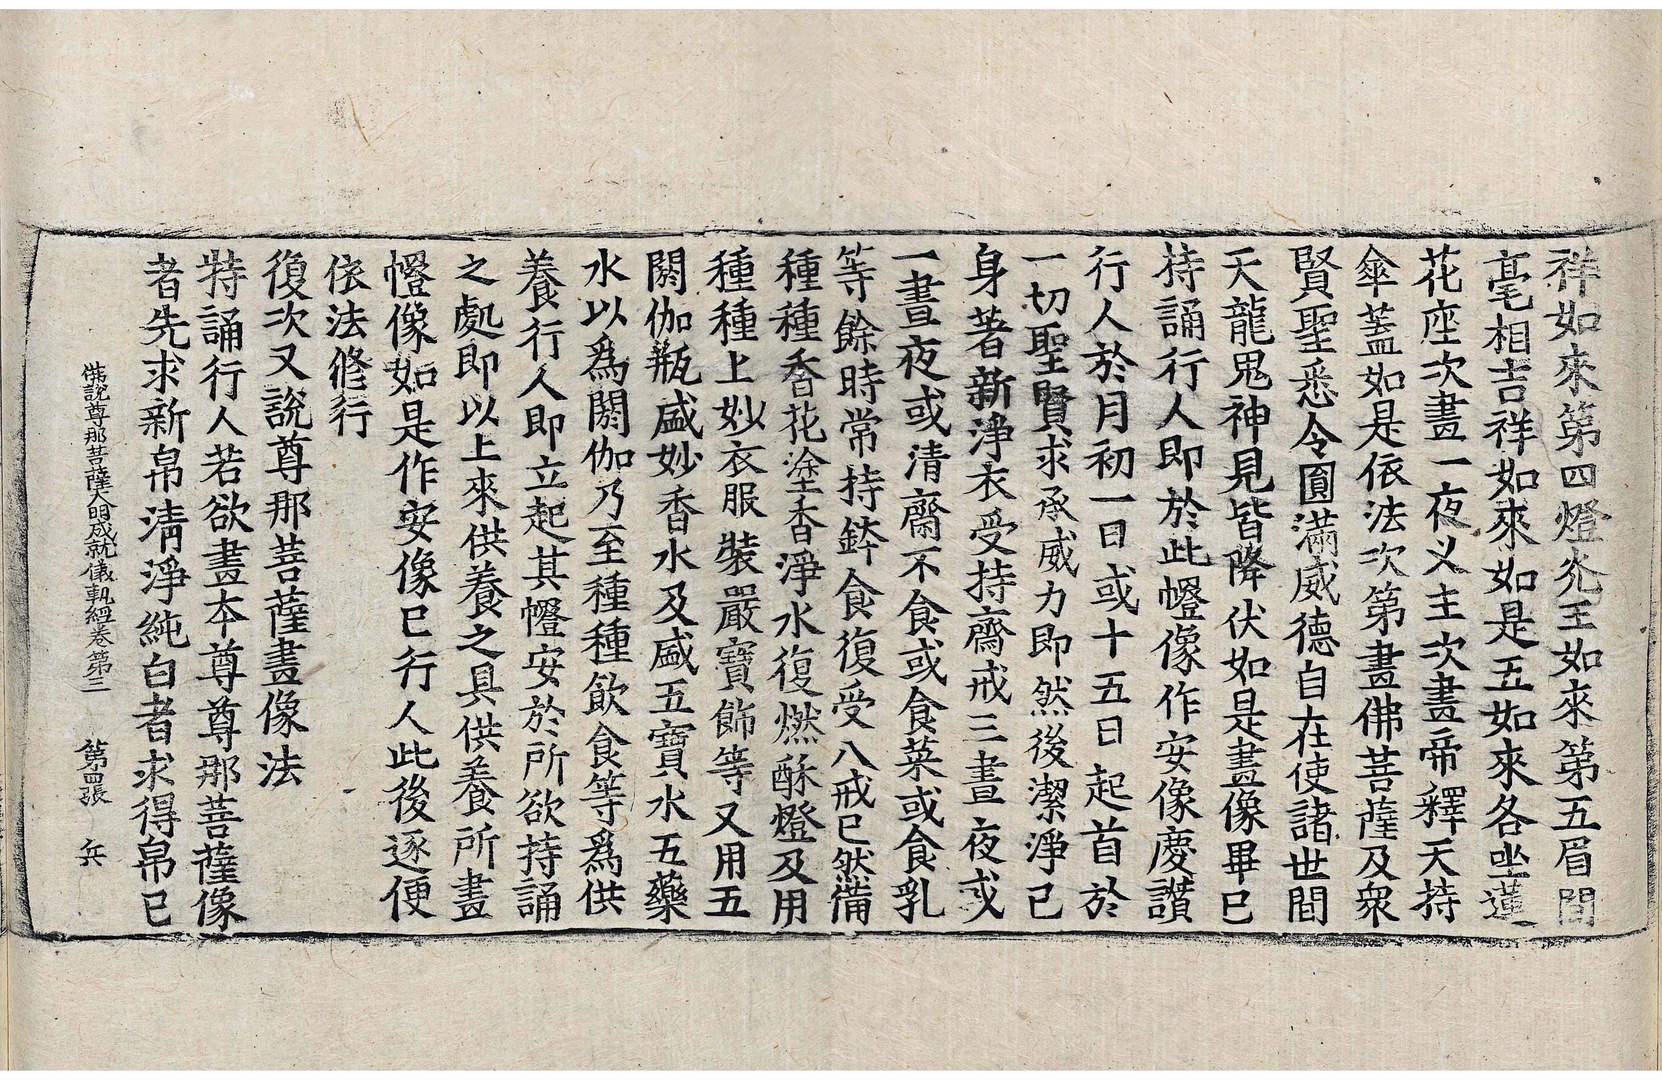 祥如來第四燈光王如來第五眉間
毫相吉祥如來如是五如來各坐蓮
花座次畫一夜义主次畫帝釋天持
傘蓋如是依法次第畫佛菩薩及衆
賢聖悉令圓滿威德自在使諸世間
天龍鬼神見皆降伏如是畫像畢已
持誦行人即於此㡧像作安像慶讃
行人於月初一日或十五日起首於
一切聖賢求承威力即然後潔淨已
身著新淨衣受持齋戒三晝夜或
一晝夜或清齋不食或食菜或食乳
等餘時常持鉢食復受八戒已然備
種種香花塗香淨水復燃酥燈及用
種種上妙衣服裝嚴寶飾等又用五
閼伽瓶盛妙香水及盛五寶水五藥
水以爲閼伽乃至種種飲食等爲供
養行人即立起其㡧安於所欲持誦
之處即以上來供養之具供養所畫
㡧像如是作安像已行人此後逐便
依法修行
復次又說尊那菩薩畫像法
持誦行人若欲畫本尊尊那菩薩像
者先求新帛清淨純白者求得帛已
佛說尊那菩薩大明成就儀軌經卷第三 第四張 兵